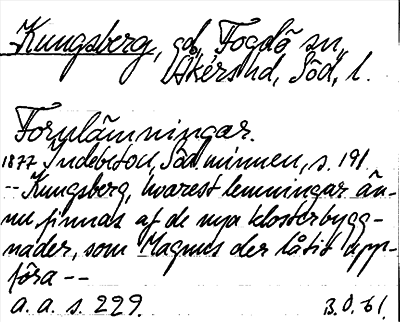 Kungsberg, gd, Fogdö sn,
Åkers hd, Söd, l.
Fornlämningar.
1877 Indebetou, Söd. minnen, s. 191
-- Kungsberg, hvarest lemningar än-
nu finnas af de nya klosterbygg-
nader, som Magnus der låtit upp-
föra --
a. a. s. 229. B.O. 61.